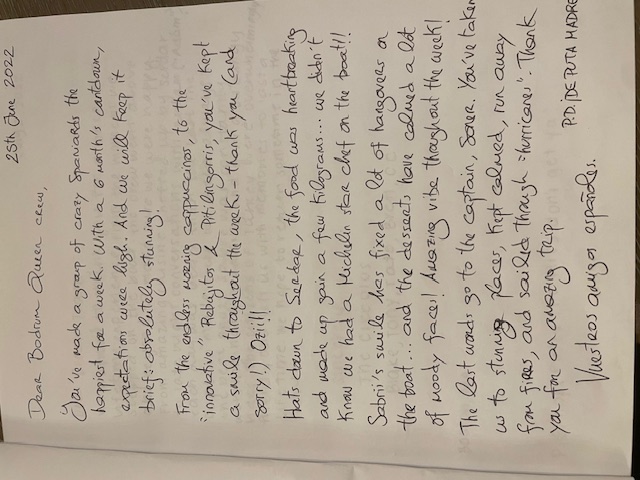 25th June 2022
Dear Bodrum Queen crew,
You've made a group of crazy Spaniards the
happiest for a week. With a 6 month's countdown,
expectations were high. And we will keep it
brief: absolutely stunning!
From the endless morning cappuccinos, to the
"innovative" Rebujitos & Pitilingorris, you've kept
a smile throughout the week - thank you (and
sorry!) Ozii!!
Hats down to Serdar, the food was heartbreaking
and made up gain a few kilograms... we didn't
know we had a Michelin star chef on the boat!!!
Sabrii's smile has fixed a lot of hangovers on
the boat... and the desserts have calmed a lot
of moody faces! Amazing vibe throughout the week!
The last words go to the captain, Soner. You've taken
us to stunning places, kept calmed, run away
from fires, and sailed through "hurricanes". Thank
you for an amazing trip.
Vuestros amigos españoles.
P.D. ¡DE PUTA MADRE